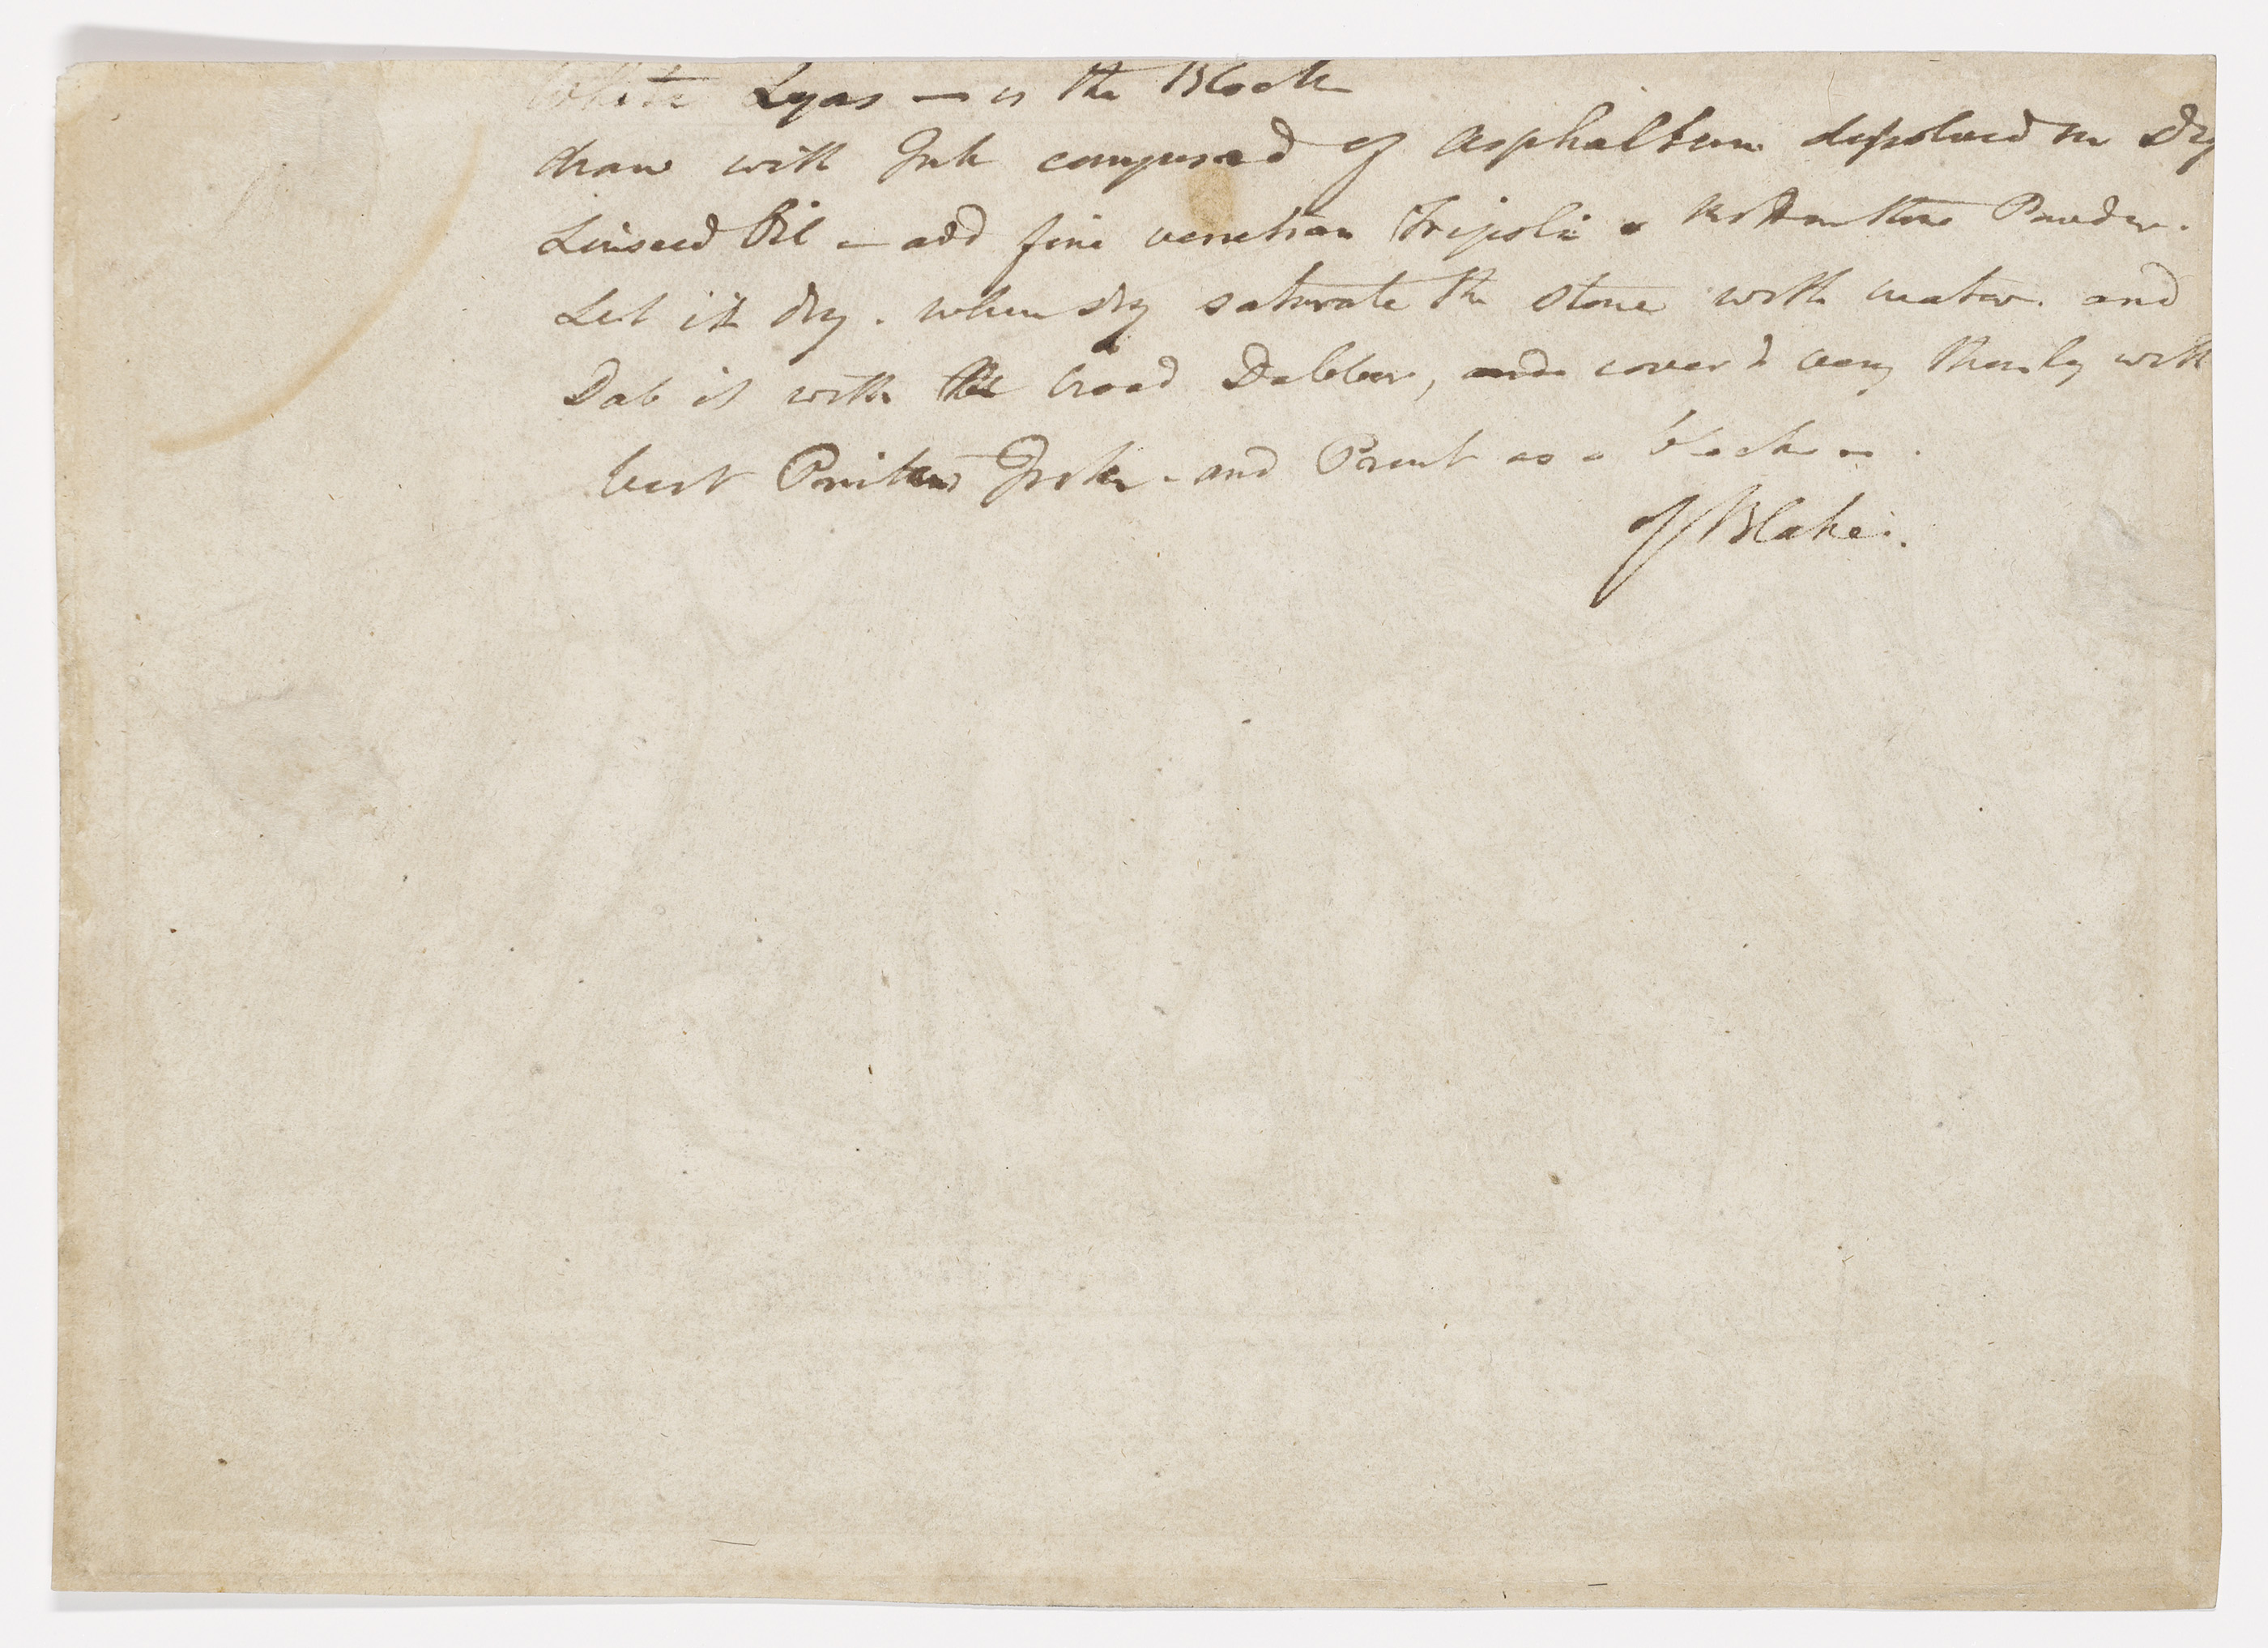 White Lyas — is the Block
draw with Ink composed of asphaltum dissolved in dry
Linseed Oil — add fine venetian Tripoli & Rotten Stone Powder.
Let it dry. when dry saturate the stone with water. and
Dab it with the broad Dabber, and cover it very thinly with
best Printers Ink - and Print as a block —.
of Blake.